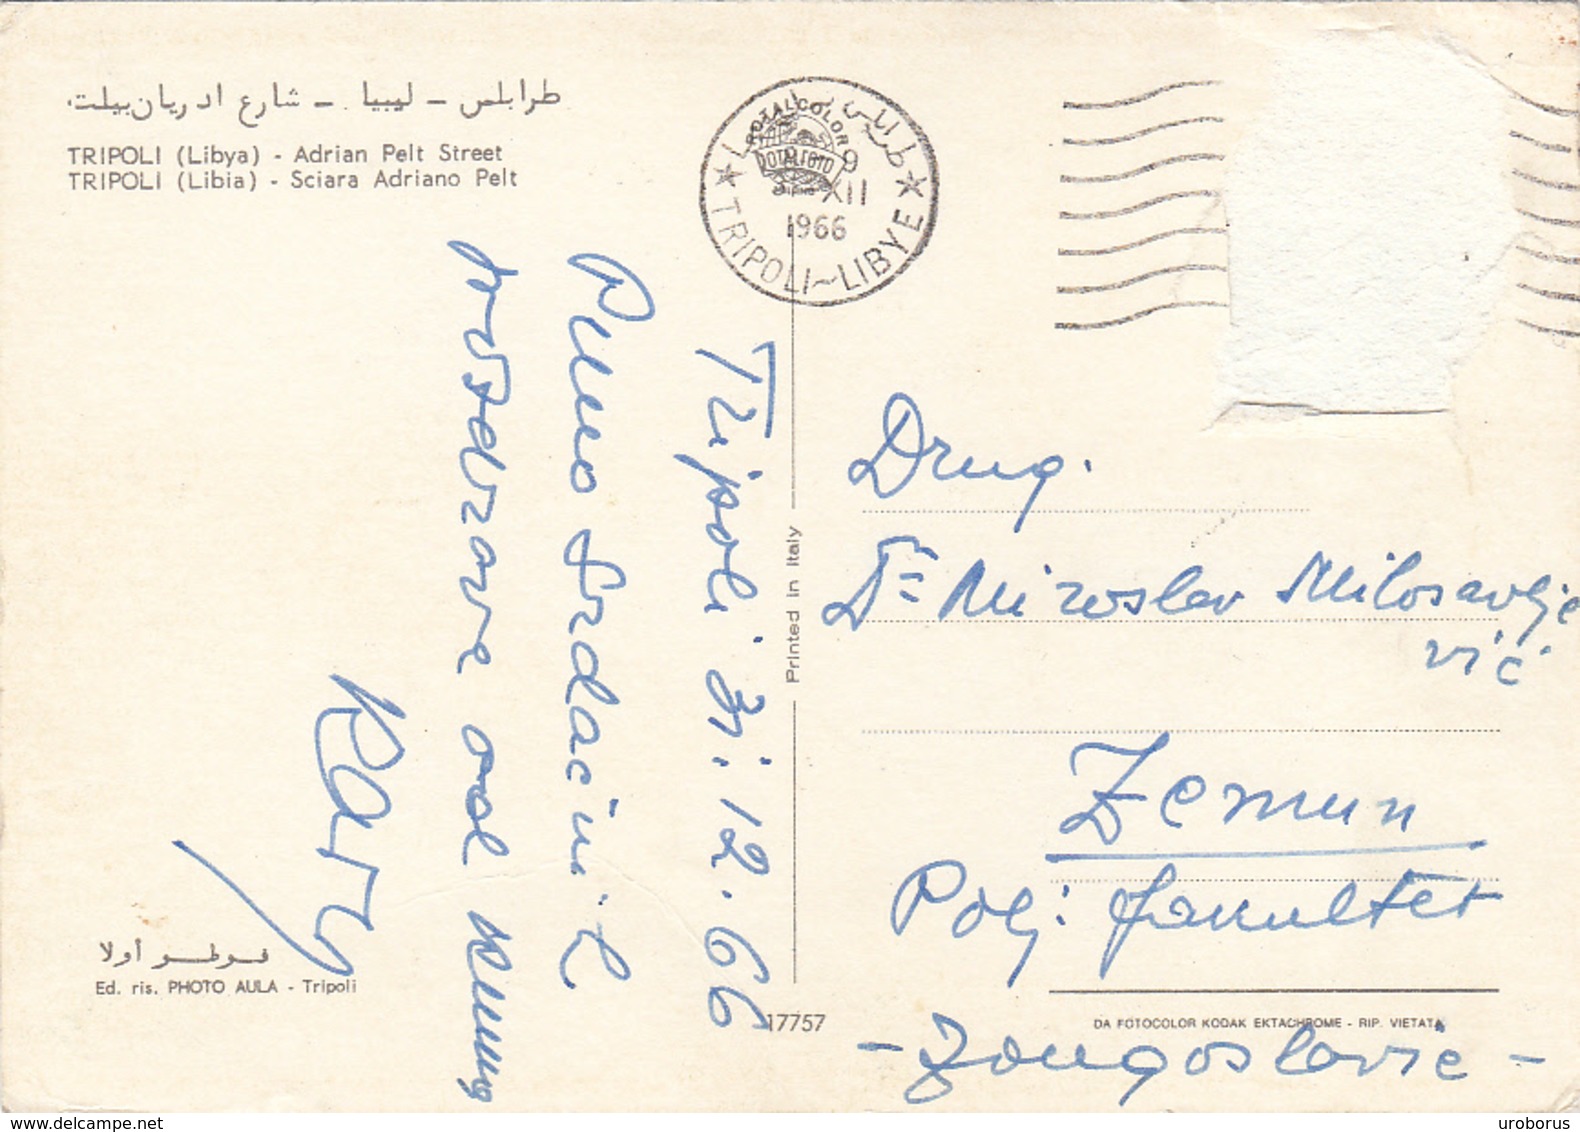 طرابلس - ليبيا - شارع ادريان بيلت.
TRIPOLI (Libya) - Adrian Pelt Street
TRIPOLI (Libia) - Sciara Adriano Pelt
طرابلس
ROTALCOLOR
ROTALFOTO
9
XII
1966
TRIPOLI - LIBYE
Tripoli 31. 12. 66
Puno srdačni L
pozdrava od
Drug.
Dr Miroslav Milosavlje
vić
Zemun
Polj: fakultet
- Jougoslavie -
Printed in Italy
فوطو أولا
Ed. ris. PHOTO AULA - Tripoli
17757
DA FOTOCOLOR KODAK EKTACHROME - RIP. VIETATA
uroborus